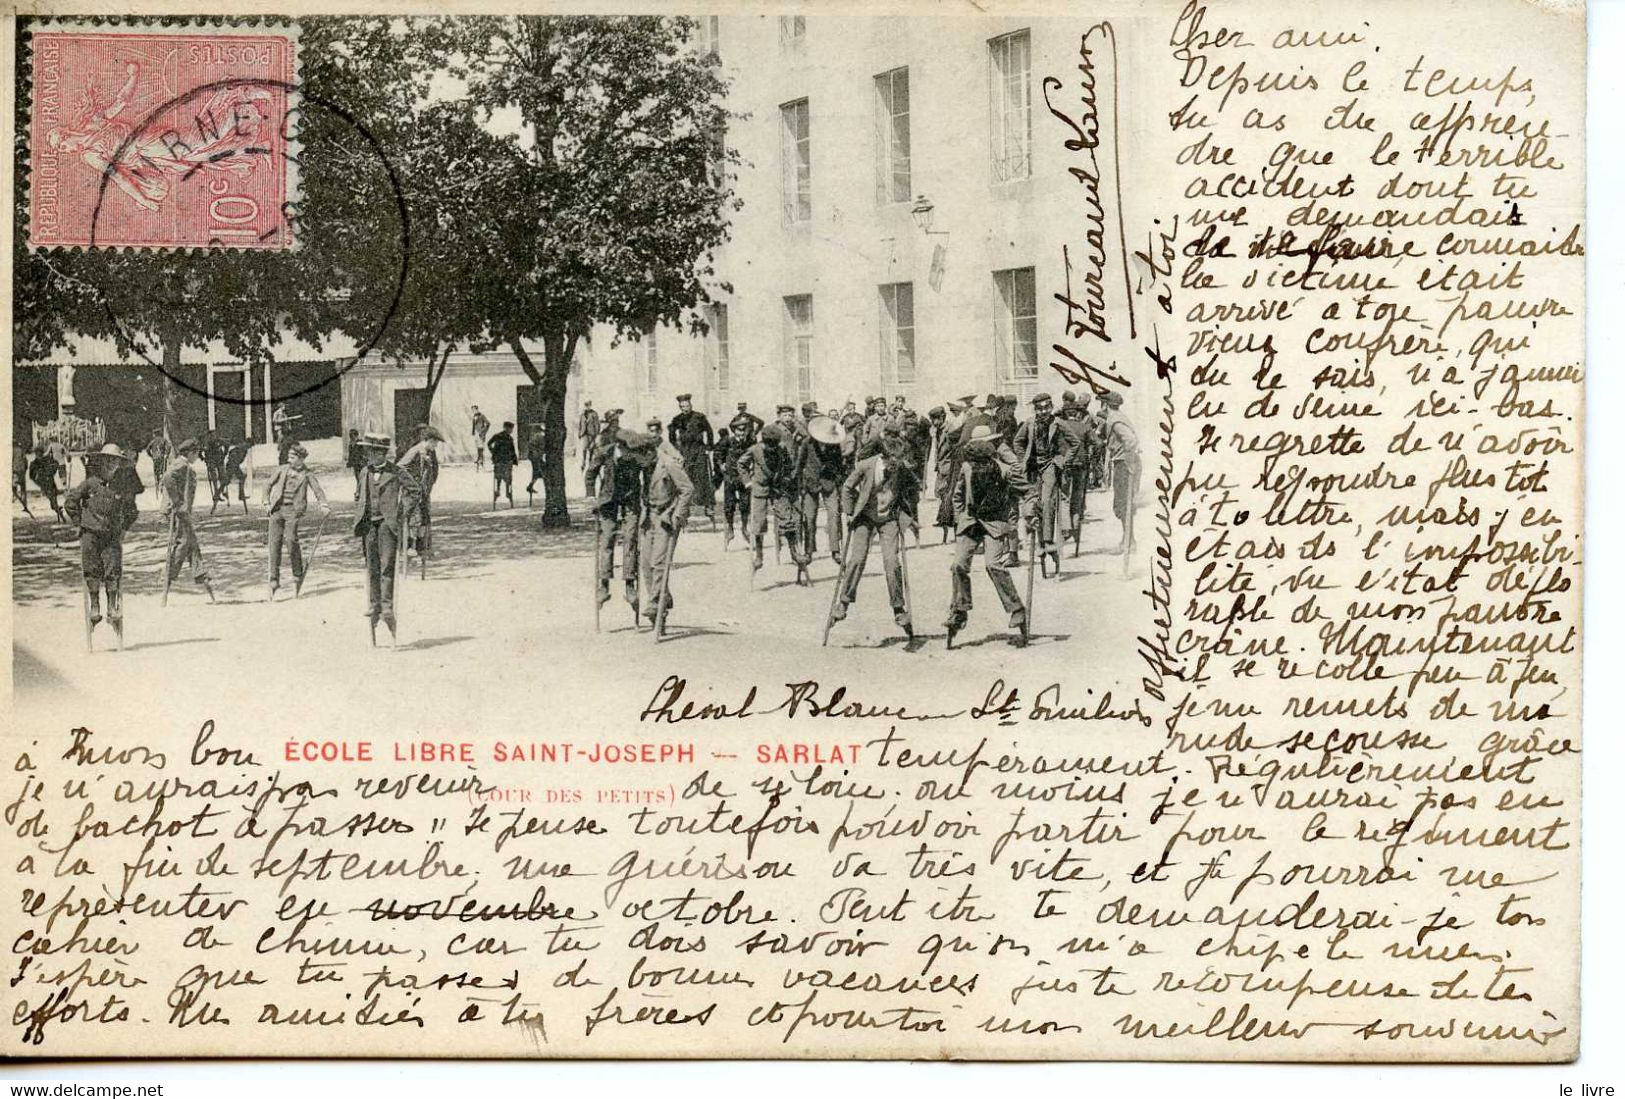 Cher ami.
Depuis le temps,
tu as du appren-
dre que le terrible
accident dont tu
me demandais
de te faire connaitre
la victime, était
arrivé à ton pauvre
vieux confrère, qui
tu le sais, n'a jamais
eu de veine ici-bas.
Je regrette de n'avoir
pu répondre plus tôt
à ta lettre, mais j'en
étais ds l'impossibi-
lité, vu l'état déplo
rable de mon pauvre
crâne. Maintenant
il se recolle peu à peu,
je me remets de ma
rude secousse grâce
à mon bon tempérament. Régulièrement
je n'aurais pas revenir de si loin, ou moins je n'aurai pas eu
de bachot à passer" Je pense toutefois pouvoir partir pour le régiment
à la fin de septembre, une guérison va très vite, et je pourrai me
représenter en novembre octobre. Peut être te demanderai-je ton
cahier de chimie, car tu dois savoir qu'on m'a chipé le mien.
J'espère que tu passes de bonnes vacances juste récompense de tes
efforts. Mes amitiés à tes frères et pour toi mon meilleur souvenir
Affectueusement à toi.
Cheval-Blanc St Emilion
ÉCOLE LIBRE SAINT-JOSEPH — SARLAT
(COUR DES PETITS)
RÉPUBLIQUE FRANÇAISE
POSTES
10c
le livre